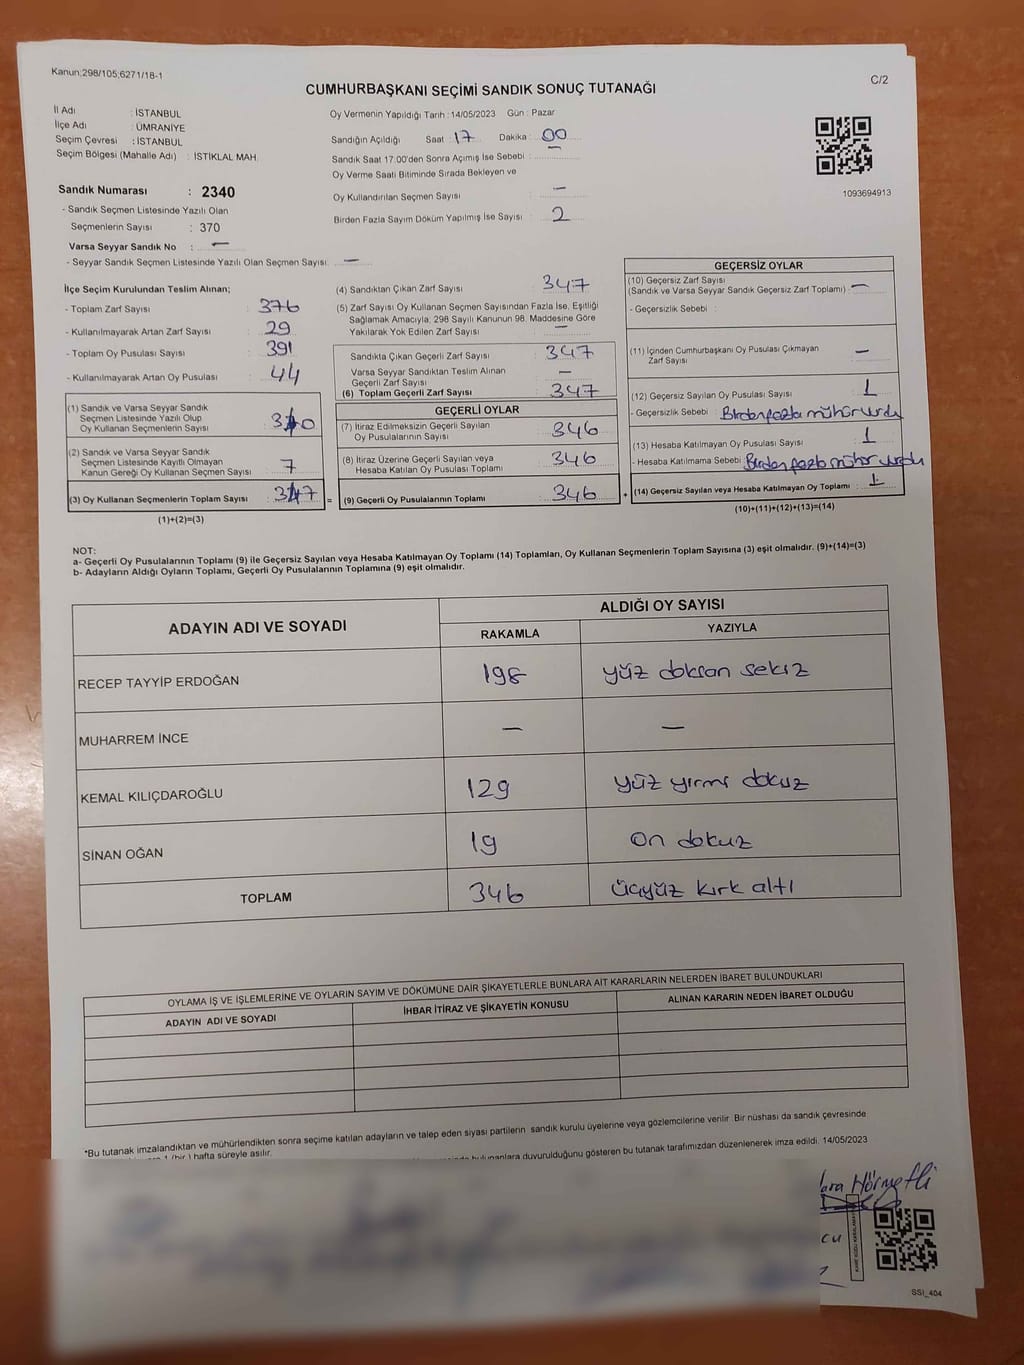 Kanun:298/105;6271/18-1
C/2
CUMHURBAŞKANI SEÇİMİ SANDIK SONUÇ TUTANAĞI
İl Adı : İSTANBUL
İlçe Adı : ÜMRANİYE
Seçim Çevresi : İSTANBUL
Seçim Bölgesi (Mahalle Adı) : İSTİKLAL MAH.
Oy Vermenin Yapıldığı Tarih : 14/05/2023 Gün : Pazar
Sandığın Açıldığı Saat : 17 Dakika : 00
Sandık Saat 17.00'den Sonra Açımış İse Sebebi :
Oy Verme Saati Bitiminde Sırada Bekleyen ve
Oy Kullandırılan Seçmen Sayısı : —
Birden Fazla Sayım Döküm Yapılmış İse Sayısı : 2
1093694913
Sandık Numarası : 2340
- Sandık Seçmen Listesinde Yazılı Olan
Seçmenlerin Sayısı : 370
Varsa Seyyar Sandık No : —
- Seyyar Sandık Seçmen Listesinde Yazılı Olan Seçmen Sayısı: —
İlçe Seçim Kurulundan Teslim Alınan;
- Toplam Zarf Sayısı : 376
- Kullanılmayarak Artan Zarf Sayısı : 29
- Toplam Oy Pusulası Sayısı : 391
- Kullanılmayarak Artan Oy Pusulası : 44
(1) Sandık ve Varsa Seyyar Sandık
Seçmen Listesinde Yazılı Olup
Oy Kullanan Seçmenlerin Sayısı :
(2) Sandık ve Varsa Seyyar Sandık
Seçmen Listesinde Kayıtlı Olmayan
Kanun Gereği Oy Kullanan Seçmen Sayısı : 7
(3) Oy Kullanan Seçmenlerin Toplam Sayısı : 347 =
(1)+(2)=(3)
(4) Sandıktan Çıkan Zarf Sayısı : 347
(5) Zarf Sayısı Oy Kullanan Seçmen Sayısından Fazla İse, Eşitliği
Sağlamak Amacıyla; 298 Sayılı Kanunun 98. Maddesine Göre
Yakılarak Yok Edilen Zarf Sayısı : —
Sandıkta Çıkan Geçerli Zarf Sayısı : 347
Varsa Seyyar Sandıktan Teslim Alınan
Geçerli Zarf Sayısı : —
(6) Toplam Geçerli Zarf Sayısı : 347
GEÇERLİ OYLAR
(7) İtiraz Edilmeksizin Geçerli Sayılan
Oy Pusulalarının Sayısı : 346
(8) İtiraz Üzerine Geçerli Sayılan veya
Hesaba Katılan Oy Pusulası Toplamı : 346
(9) Geçerli Oy Pusulalarının Toplamı : 346 +
GEÇERSİZ OYLAR
(10) Geçersiz Zarf Sayısı
(Sandık ve Varsa Seyyar Sandık Geçersiz Zarf Toplamı) : —
- Geçersizlik Sebebi :
(11) İçinden Cumhurbaşkanı Oy Pusulası Çıkmayan
Zarf Sayısı : —
(12) Geçersiz Sayılan Oy Pusulası Sayısı : 1
- Geçersizlik Sebebi : Birden fazla mühür vurdu
(13) Hesaba Katılmayan Oy Pusulası Sayısı : 1
- Hesaba Katılmama Sebebi : Birden fazla mühür vurdu
(14) Geçersiz Sayılan veya Hesaba Katılmayan Oy Toplamı : 1
(10)+(11)+(12)+(13)=(14)
NOT:
a- Geçerli Oy Pusulalarının Toplamı (9) ile Geçersiz Sayılan veya Hesaba Katılmayan Oy Toplamı (14) Toplamları, Oy Kullanan Seçmenlerin Toplam Sayısına (3) eşit olmalıdır. (9)+(14)=(3)
b- Adayların Aldığı Oyların Toplamı, Geçerli Oy Pusulalarının Toplamına (9) eşit olmalıdır.
ADAYIN ADI VE SOYADI
ALDIĞI OY SAYISI
RAKAMLA YAZIYLA
RECEP TAYYİP ERDOĞAN 198 yüz doksan sekiz
MUHARREM İNCE — —
KEMAL KILIÇDAROĞLU 129 yüz yirmi dokuz
SİNAN OĞAN 19 on dokuz
TOPLAM 346 üçyüz kırk altı
OYLAMA İŞ VE İŞLEMLERİNE VE OYLARIN SAYIM VE DÖKÜMÜNE DAİR ŞİKAYETLERLE BUNLARA AİT KARARLARIN NELERDEN İBARET BULUNDUKLARI
ADAYIN ADI VE SOYADI İHBAR İTİRAZ VE ŞİKAYETİN KONUSU ALINAN KARARIN NEDEN İBARET OLDUĞU
*Bu tutanak imzalandıktan ve mühürlendikten sonra seçime katılan adayların ve talep eden siyasi partilerin sandık kurulu üyelerine veya gözlemcilerine verilir. Bir nüshası da sandık çevresinde
1 (bir) hafta süreyle asılır.
bulunanlara duyurulduğunu gösteren bu tutanak tarafımızdan düzenlenerek imza edildi. 14/05/2023
cu
SSI_404